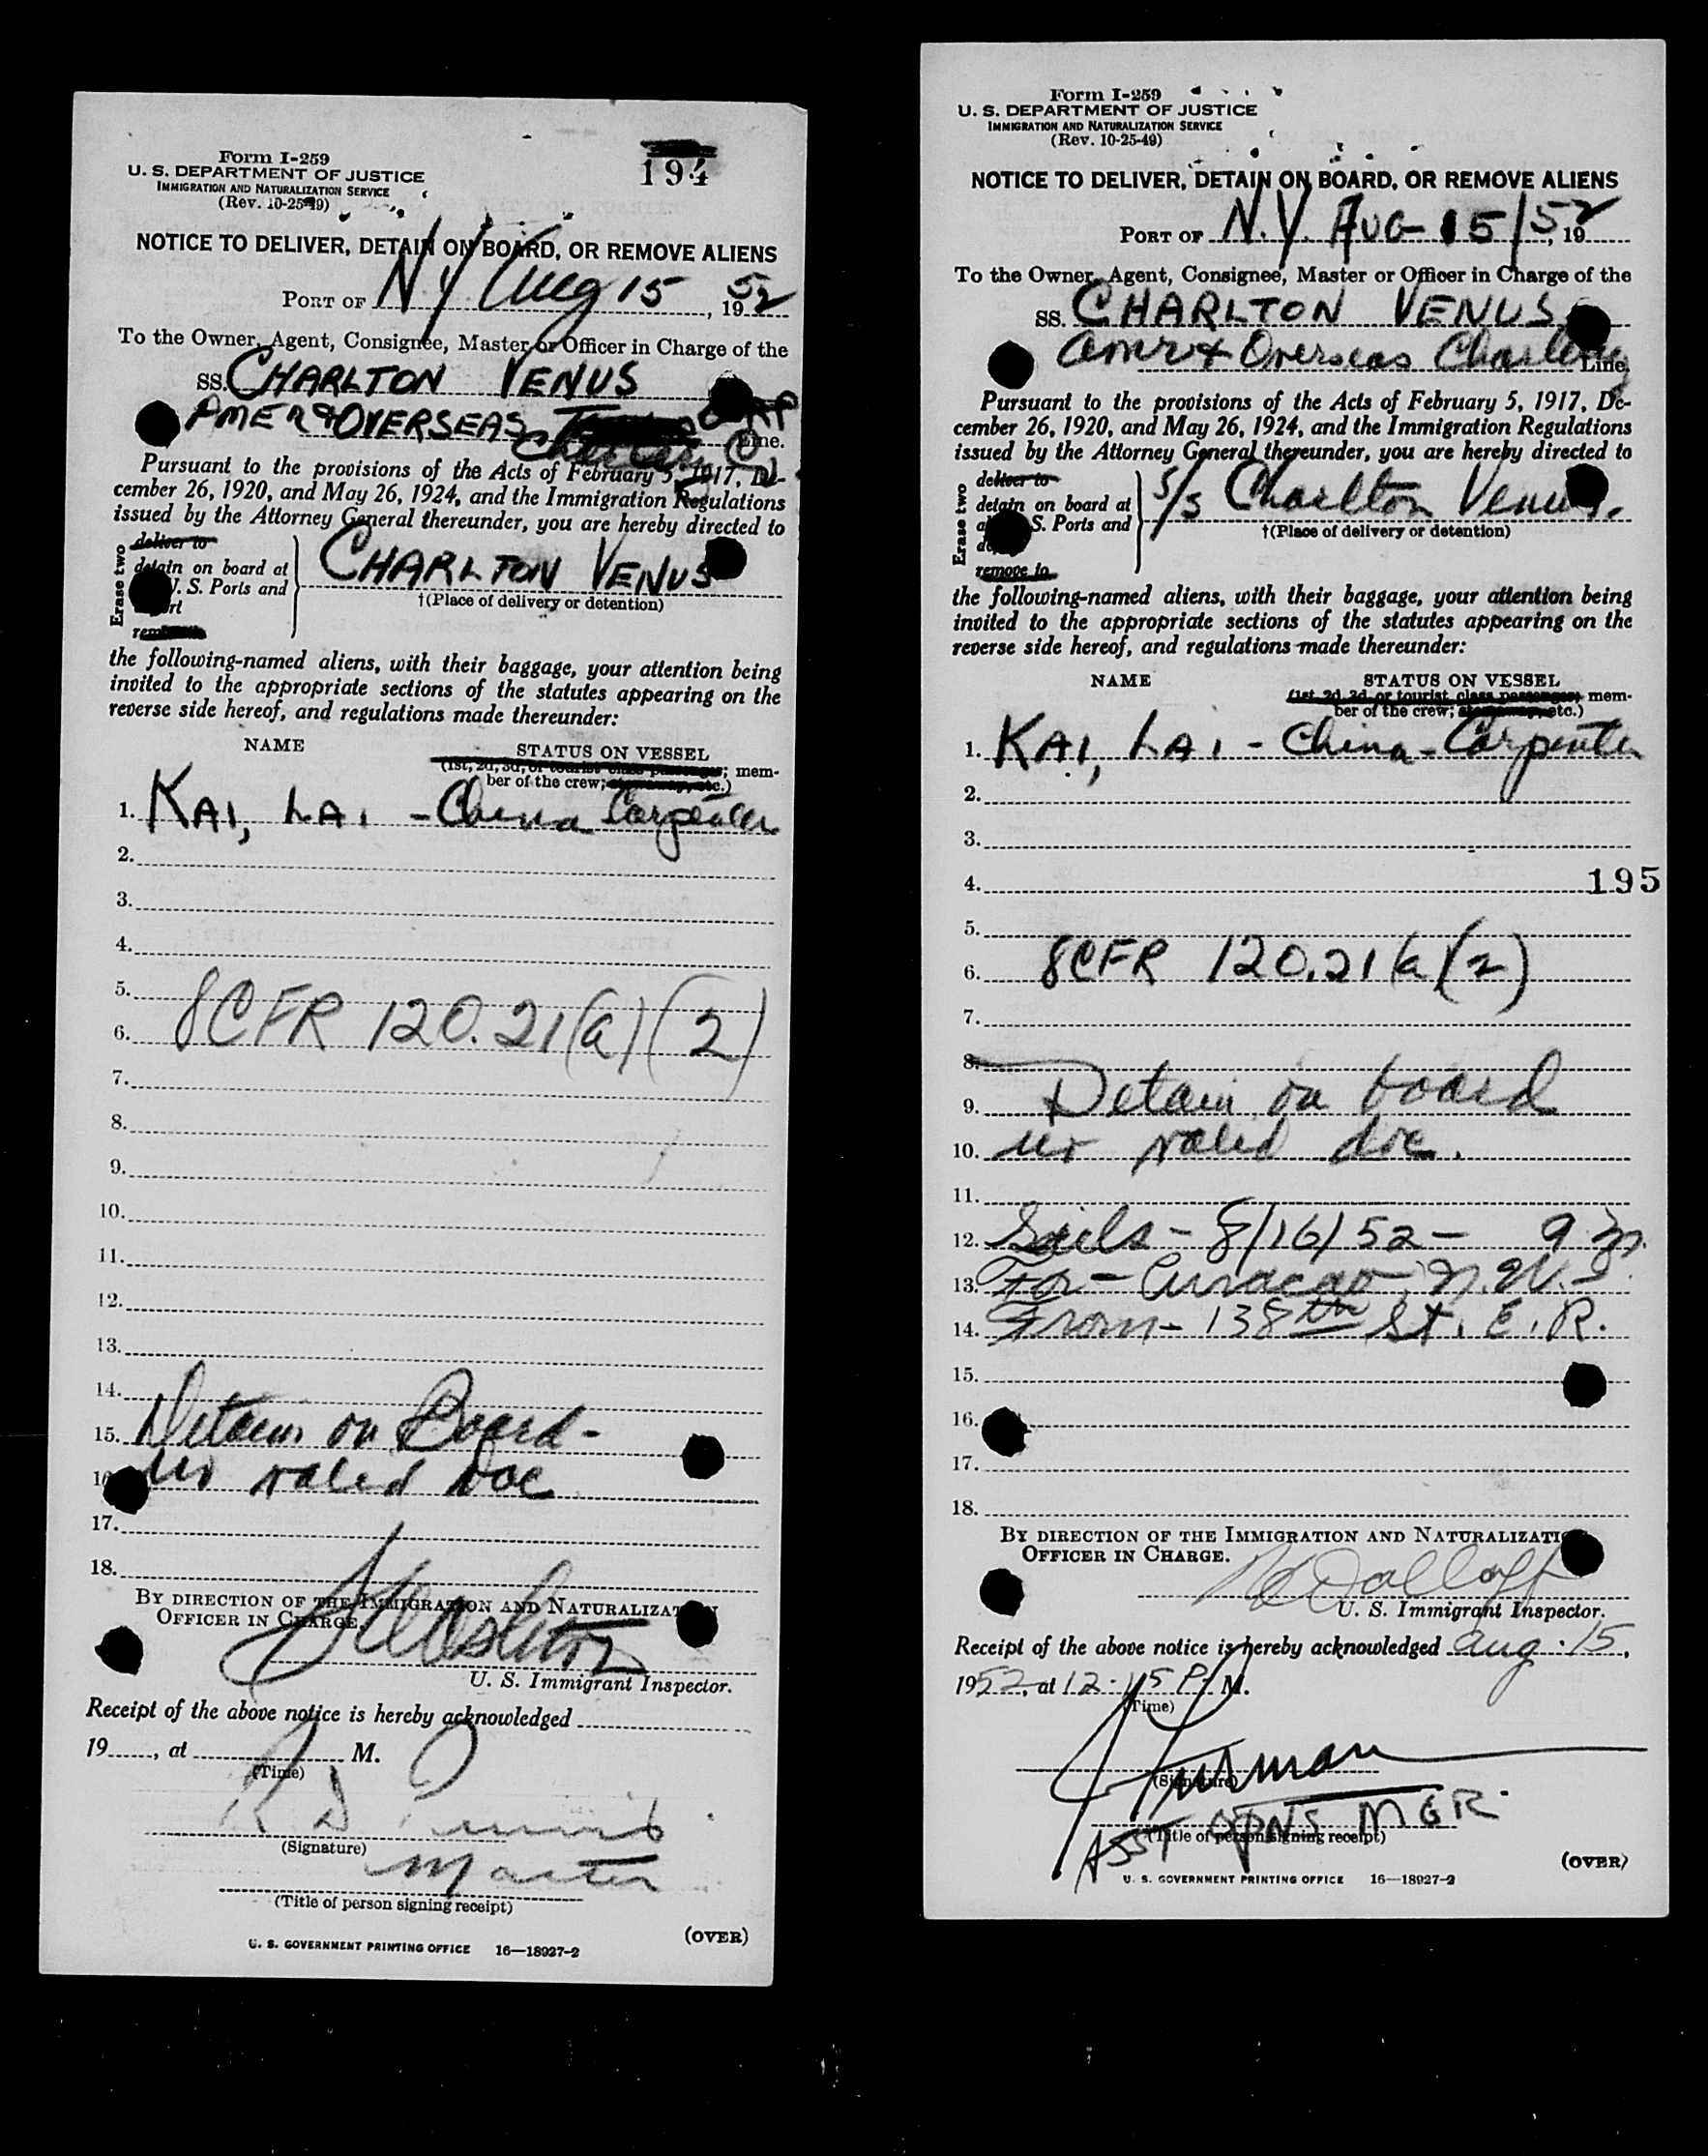 Form I-259
U. S. DEPARTMENT OF JUSTICE
IMMIGRATION AND NATURALIZATION SERVICE
(Rev. 10-25-49)
194
NOTICE TO DELIVER, DETAIN ON BOARD, OR REMOVE ALIENS
PORT OF N.Y. Aug 15, 1952
To the Owner, Agent, Consignee, Master or Officer in Charge of the
SS. CHARLTON VENUS
AMER & OVERSEAS Line.
Pursuant to the provisions of the Acts of February 5, 1917, De-
cember 26, 1920, and May 26, 1924, and the Immigration Regulations
issued by the Attorney General thereunder, you are hereby directed to
Erase two
deliver to
detain on board at
U. S. Ports and
CHARLTON VENUS
†(Place of delivery or detention)
the following-named aliens, with their baggage, your attention being
invited to the appropriate sections of the statutes appearing on the
reverse side hereof, and regulations made thereunder:
NAME STATUS ON VESSEL
(1st, 2d, 3d, or tourist class passenger; mem-
ber of the crew; stowaway, etc.)
1. KAI, LAI - China Carpenter
2.
3.
4.
5.
6. 8CFR 120.21(a)(2)
7.
8.
9.
10.
11.
12.
13.
14.
15. Detain on Board -
16. no valid Doc
17.
18.
BY DIRECTION OF THE IMMIGRATION AND NATURALIZATION
OFFICER IN CHARGE.
U. S. Immigrant Inspector.
Receipt of the above notice is hereby acknowledged
19......, at M.
(Time)
(Signature)
Master
(Title of person signing receipt)
(OVER)
U. S. GOVERNMENT PRINTING OFFICE 16—18927-2
Form I-259
U. S. DEPARTMENT OF JUSTICE
IMMIGRATION AND NATURALIZATION SERVICE
(Rev. 10-25-49)
NOTICE TO DELIVER, DETAIN ON BOARD, OR REMOVE ALIENS
PORT OF N.Y. AUG 15/52, 19
To the Owner, Agent, Consignee, Master or Officer in Charge of the
SS. CHARLTON VENUS
Amer & Overseas Chartering Line.
Pursuant to the provisions of the Acts of February 5, 1917, De-
cember 26, 1920, and May 26, 1924, and the Immigration Regulations
issued by the Attorney General thereunder, you are hereby directed to
Erase two
deliver to
detain on board at
S. Ports and
remove to
S/S Charlton Venus.
†(Place of delivery or detention)
the following-named aliens, with their baggage, your attention being
invited to the appropriate sections of the statutes appearing on the
reverse side hereof, and regulations made thereunder:
NAME STATUS ON VESSEL
(1st, 2d, 3d, or tourist class passenger; mem-
ber of the crew; stowaway, etc.)
1. KAI, LAI - China - Carpenter
2.
3.
4.
195
5.
6. 8CFR 120.21(a)(2)
7.
8.
9. Detain on board
10. no valid doc.
11.
12. Sails - 8/16/52 - 9 
13. For - Curacao, N.W.I.
14. From - 138th St. E. R.
15.
16.
17.
18.
BY DIRECTION OF THE IMMIGRATION AND NATURALIZATION
OFFICER IN CHARGE.
U. S. Immigrant Inspector.
Receipt of the above notice is hereby acknowledged Aug. 15,
1952, at 12:15 P. M.
(Time)
(Signature)
ASST OPNS MGR.
(Title of person signing receipt)
(OVER)
U. S. GOVERNMENT PRINTING OFFICE 16—18927-2